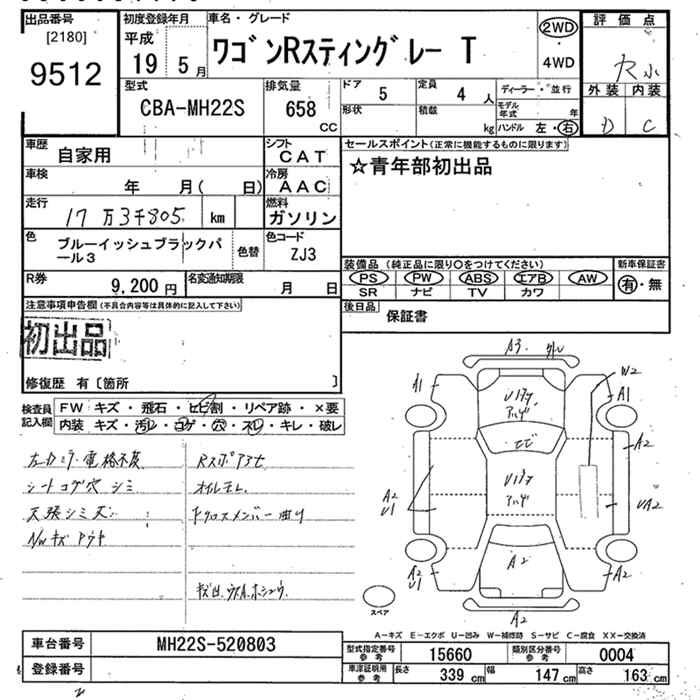 出品番号
[2180]
9512
初度登録年月
平成
19 5 月
車名・グレード
ワゴンRスティングレー T
2WD
4WD
評価点
外装 内装
D C
型式
CBA-MH22S
排気量
658
CC
ドア
5
形状
定員
4 人
積載
kg
ディーラー・並行
モデル年式 年
ハンドル 左・右
車歴
自家用
シフト
CAT
車検
年 月( 日)
冷房
AAC
走行
17万3千805 km
燃料
ガソリン
色
ブルーイッシュブラックパ
ール3
色替
色コード
ZJ3
R券
9,200 円
名変通知期限
月 日
セールスポイント(正常に機能するものに限ります)
☆青年部初出品
装備品(純正品に限り○をつけてください)
PS PW ABS エアB AW
SR ナビ TV カワ
新車保証書
有・無
後日品
保証書
注意事項申告欄(不具合内容等は具体的に記入して下さい)
初出品
修復歴 有〔箇所 〕
検査員
記入欄
FW キズ・飛石・ヒビ割・リペア跡・×要
内装 キズ・汚レ・コゲ・穴・スレ・キレ・破レ
シートコゲ穴 シミ
オイルモレ
A3
A1
W2
A1
A2
A2
U1
UA2
A2
A2
U1
A2
A2
スペア
A-キズ E-エクボ U-凹み W-補修跡 S-サビ C-腐食 XX-交換済
車台番号
MH22S-520803
登録番号
型式指定番号
参考
15660
類別区分番号
参考
0004
車庫証明用
参考
長さ
339 cm
幅
147 cm
高さ
163 cm